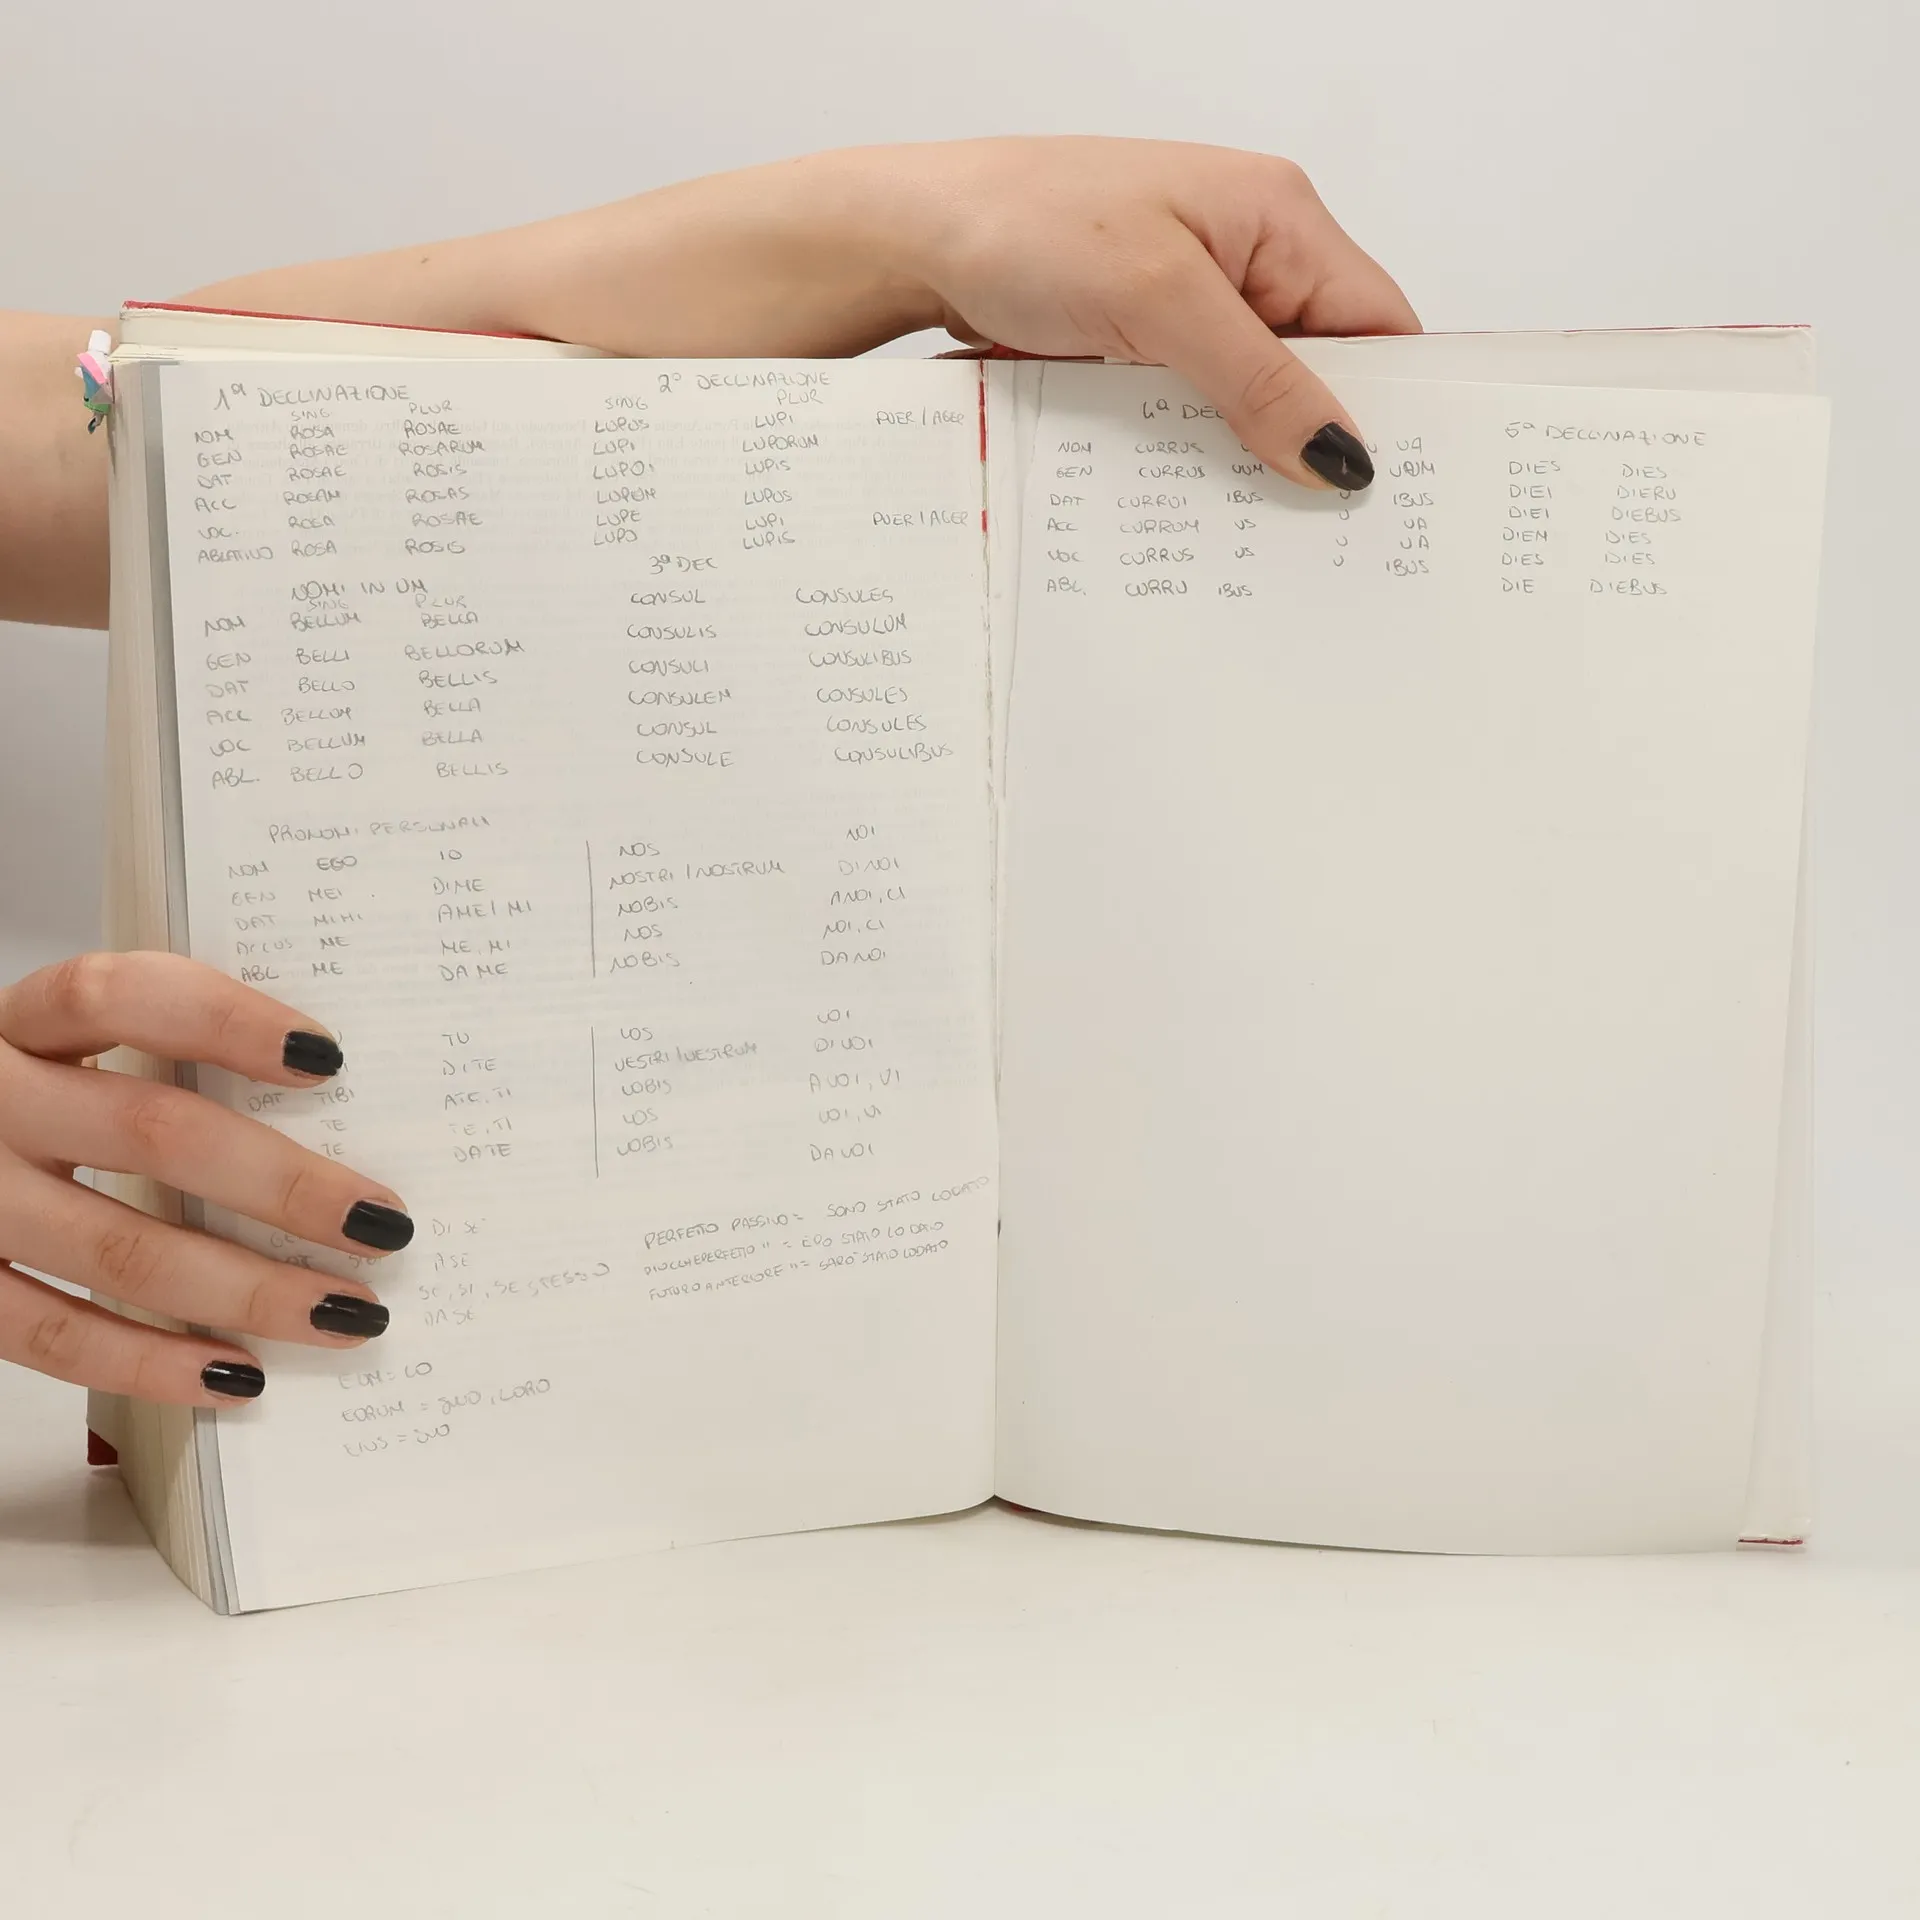 1ª DECLINAZIONE
SING PLUR
NOM ROSA ROSAE
GEN ROSAE ROSARUM
DAT ROSAE ROSIS
ACC ROSAM ROSAS
VOC. ROSA ROSAE
ABLATIVO ROSA ROSIS
2ª DECLINAZIONE
SING PLUR
LUPUS LUPI PUER / AGER
LUPI LUPORUM
LUPOI LUPIS
LUPUM LUPOS
LUPE LUPI PUER / AGER
LUPO LUPIS
NOMI IN UM
SING PLUR
NOM BELLUM BELLA
GEN BELLI BELLORUM
DAT BELLO BELLIS
ACC BELLUM BELLA
VOC BELLUM BELLA
ABL. BELLO BELLIS
3ª DEC
CONSUL CONSULES
CONSULIS CONSULUM
CONSULI CONSULIBUS
CONSULEM CONSULES
CONSUL CONSULES
CONSULE CONSULIBUS
PRONOMI PERSONALI
NOM EGO IO NOS NOI
GEN MEI DI ME NOSTRI / NOSTRUM DI NOI
DAT MIHI A ME / MI NOBIS A NOI, CI
ACCUS ME ME, MI NOS NOI, CI
ABL ME DA ME NOBIS DA NOI
TU VOS VOI
DI TE VESTRI / VESTRUM DI VOI
DAT TIBI A TE, TI VOBIS A VOI, VI
TE TE, TI VOS VOI, VI
TE DA TE VOBIS DA VOI
DI SE
A SE
SE, SI, SE STESSO
DA SE
PERFETTO PASSIVO = SONO STATO LODATO
PIUCCHEPERFETTO " = ERO STATO LODATO
FUTURO ANTERIORE " = SARO' STATO LODATO
EUM = LO
EORUM = SUO, LORO
EIUS = SUO
4ª DEC
NOM CURRUS U UA
GEN CURRUS UUM UUM
DAT CURRUI IBUS U IBUS
ACC CURRUM US U UA
VOC CURRUS US U UA
ABL. CURRU IBUS U IBUS
5ª DECLINAZIONE
DIES DIES
DIEI DIERU
DIEI DIEBUS
DIEM DIES
DIES DIES
DIE DIEBUS